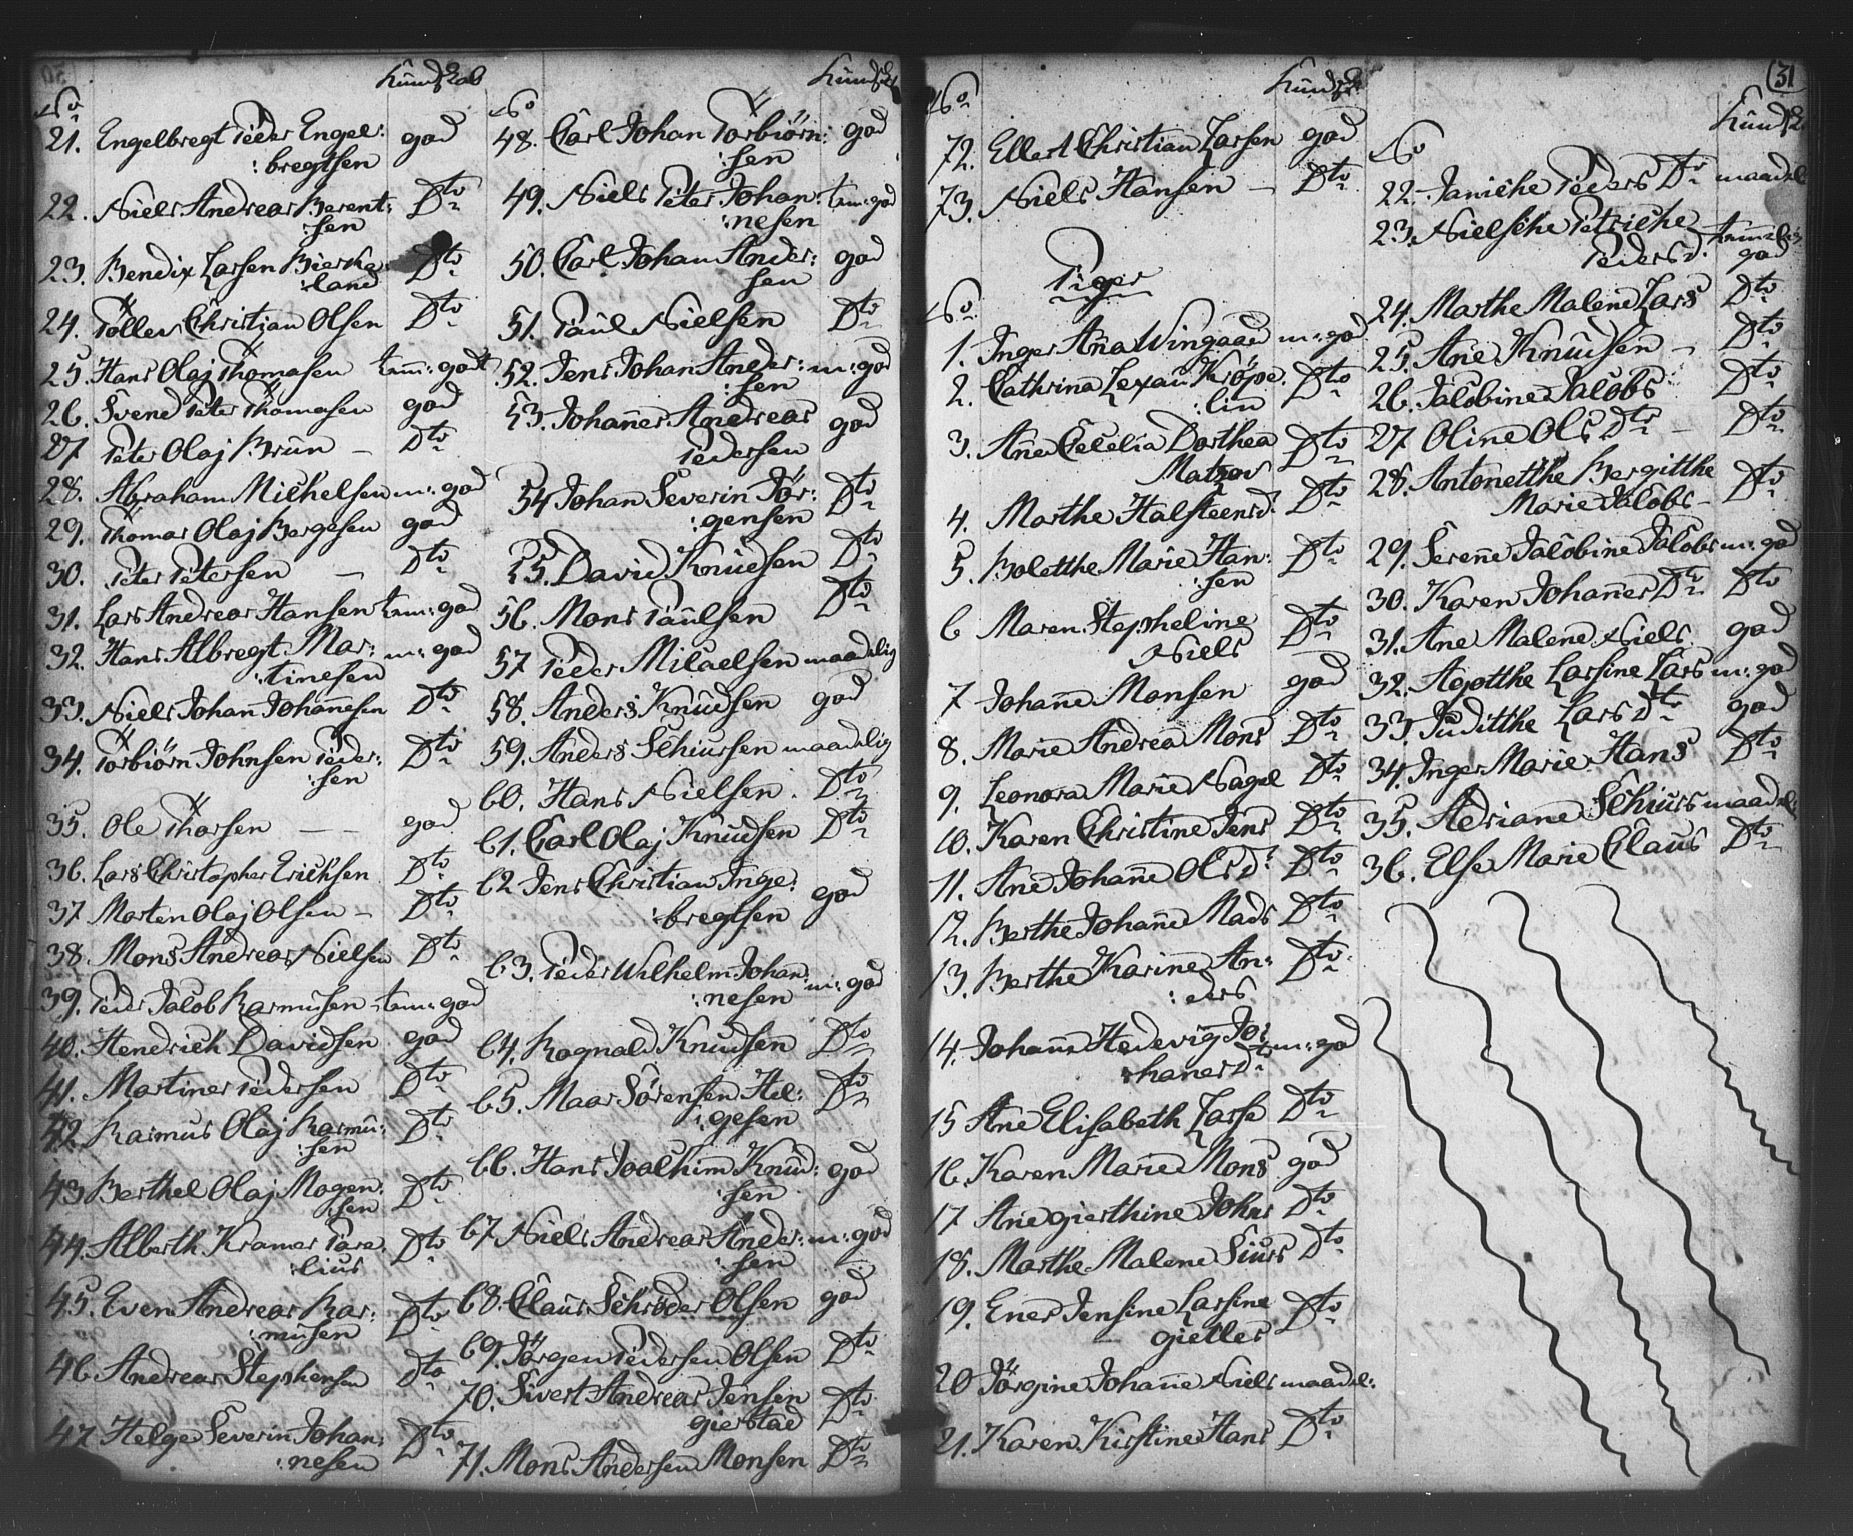 No Kundskab
21. Engelbregt Peder Engel: god
:bregtsen
22. Niels Andreas Berent: Dto
:sen
23. Bendix Larsen Bierke: Dto
:land
24. Töller Christian Olsen Dto
25. Hans Olaj Thomasen tem: godt
26. Svend Peter Thomasen god
27 Peter Olaj Brun – Dto
28. Abraham Michelsen m: god
29. Thomas Olaj Bergesen god
30. Peter Petersen — Dto
31. Lars Andreas Hansen tem: god
32. Hans Albregt Mar: m: god
:tinesen
33. Niels Johan Johannesen Dto
34. Torbiörn Johnsen Peder: Dto
:sen
35. Ole Thorsen — — god
36. Lars Christopher Erichsen Dto
37 Morten Olaj Olsen – Dto
38. Mons Andreas Nielsen Dto
39. Peder Jacob Rasmusen tem: god
40. Hendrich Davidsen god
41. Martines Pedersen Dto
42 Rasmus Olaj Rasmu: Dto
:sen
43 Berthel Olaj Mogen: Dto
:sen
44. Alberth Kramer Pare: Dto
:lius
45. Even Andreas Ras: Dto
:musen
46 Andreas Stephensen Dto
47 Helge Severin Johan: Dto
:nesen
No Kundsk
48. Carl Johan Torbiörn: god
:sen
49. Niels Peter Johan: tem: god
:nesen
50. Carl Johan Ander: god
sen
51. Paul Nielsen Dto
52. Jens Johan Ander: m: god
:sen
53. Johannes Andreas god
Pedersen
54 Johan Severin Jör: Dto
:gensen
55. David Knudsen Dto
56. Mons Paulsen Dto
57 Peder Micaelsen maadelig
58. Anders Knudsen god
59. Anders Schiursen maadelig
60. Hans Nielsen. Dto
61. Carl Olaj Knudsen Dto
62 Jens Christian Inge: god
:bregtsen
63. Peder Wilhelm Johan: m: god
:nesen
64. Rognald Knudsen Dto
65. Maas Sörensen Hel: Dto
:gesen
66. Hans Joachim Knud: god
:sen
67 Niels Andreas Ander: m: god
:sen
68. Claus Schröder Olsen god
69. Jörgen Pedersen Olsen Dto
70. Sivert Andreas Jensen
gierstad Dto
71. Mons Andersen Monsen Dto
No Kundsk
72. Ellert Christian Larsen god
73. Niels Hansen – Dto
Piger
No
1. Inger Ana Wingaard m: god
2. Cathrina Lexau Kröpe: Dto
:lin
3. Ane Cecelia Dorthea Dto
Matzov
4. Marthe Halsteensd. Dto
5. Boletthe Marie Han: Dto
:sen
6 Maren Stepheline Dto
Niels
7 Johane Monsen god
8. Marie Andrea Mons Dto
9. Leonora Marie Nagel Dto
10. Karen Christine Jens Dto
11. Ane Johane Ols Dr Dto
12. Berthe Johane Mads Dto
13. Berthe Karine An: Dto
:ders
14. Johane Hedevig Jo: m: god
:hanes Dtr
15 Ane Elisabeth Larse Dto
16. Karen Marie Mons god
17 Ane gierthine Johns Dto
18. Marthe Malene Siurs Dto
19. Ener Jensine Larsine Dto
gielles
20 Jörgine Johane Niels maadel:
21. Karen Kirstine Hans Dto
31
Kundsk
No
22. Janiche Peders Dtr maadel
23. Nielsche Petriche temelig
Pedersd. god
24. Marthe Malene Lars Dto
25. Ane Knudsen – Dto
26. Jacobine Jacobs Dto
27 Oline Ols Dtr – Dto
28. Antonetthe Bergitthe Dto
Marie Jacobs –
29. Serene Jacobine Jacobs m: god
30. Karen Johanes Dtr Dto
31. Ane Malene Niels god
32. Agotthe Larsine Lars m: god
33. Juditthe Lars Dtr god
34. Inger Marie Hans Dto
35. Adriane Schiurs maadel:
36. Else Marie Claus Dto